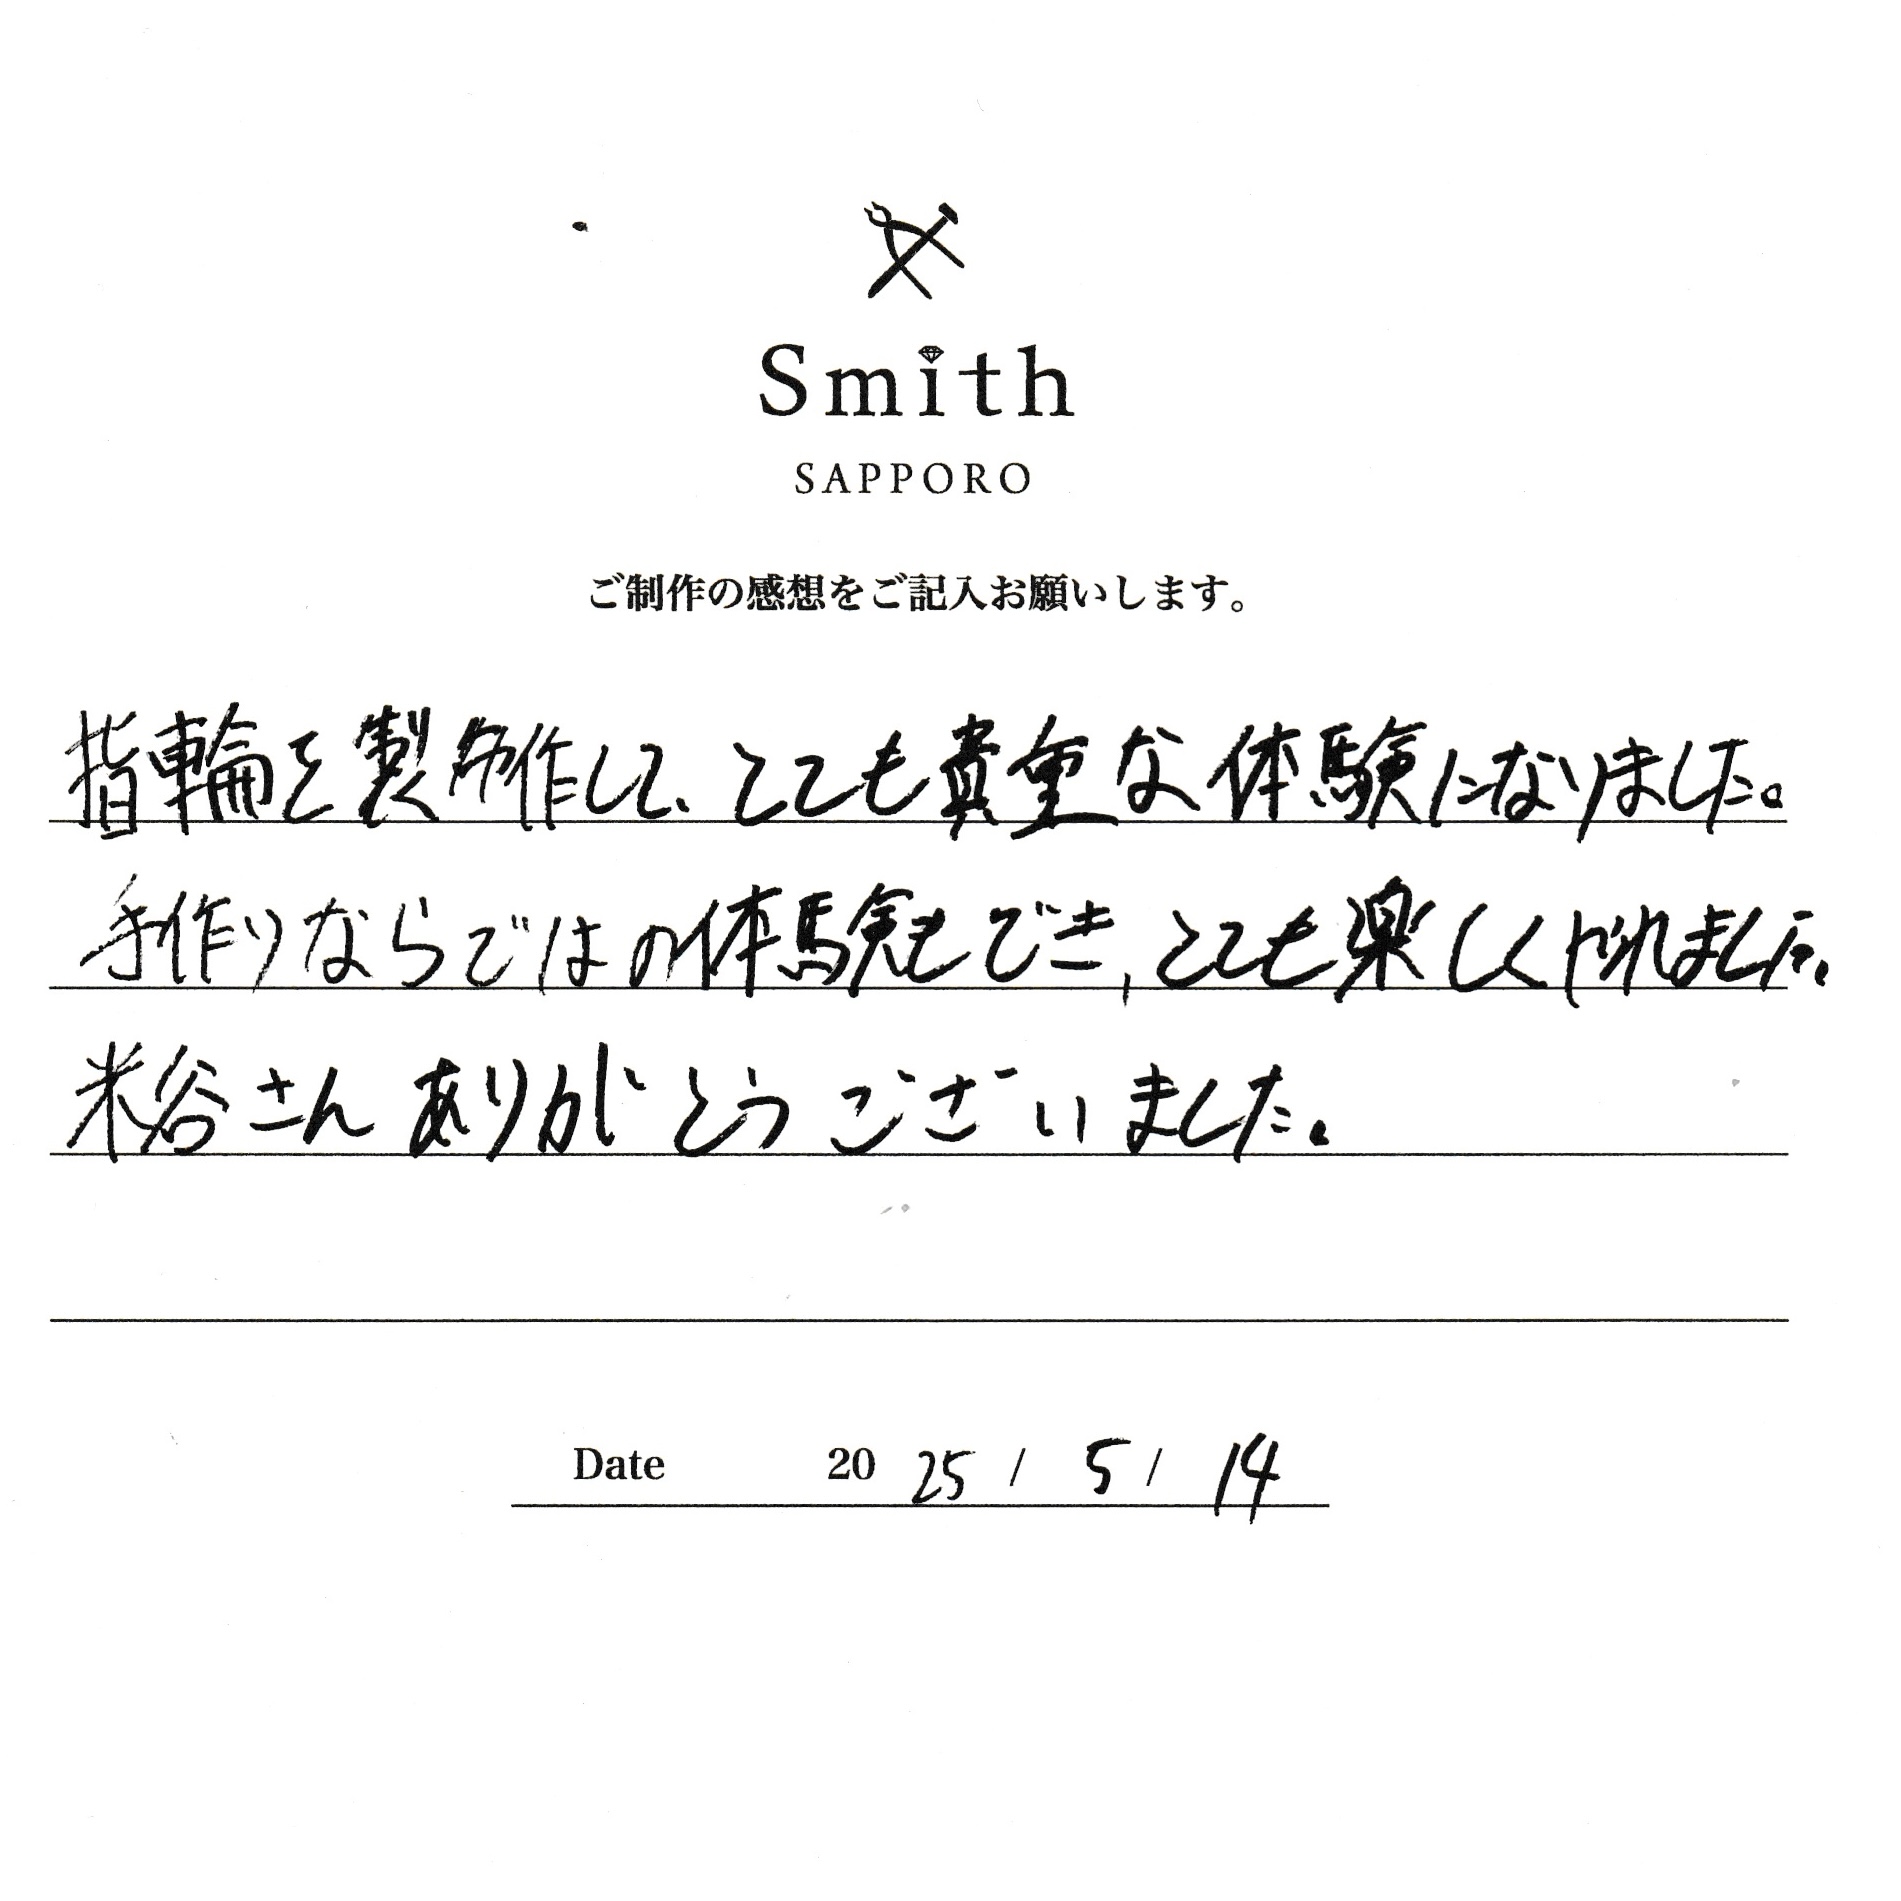 Smith
SAPPORO
ご制作の感想をご記入お願いします。
指輪を製作して、とても貴重な体験になりました。
手作りならではの体験もでき、とても楽しくやれました。
米谷さんありがとうございました。
Date 2025 / 5 / 14